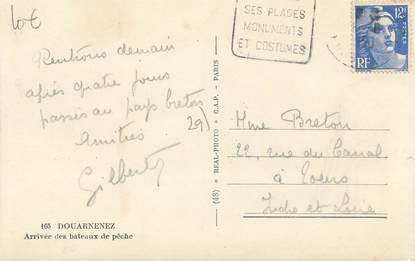 10€
SES PLAGES
MONUMENTS
ET COSTUMES
12F
POSTES
RF
Rentrons demain
après quatre jours
passés au pays breton
Amitiés
Gilbert
29)
(48) • REAL-PHOTO • C.A.P. - PARIS
Mme Breton
22, rue du Canal
à Tours
Indre et Loire
165 DOUARNENEZ
Arrivée des bateaux de pêche